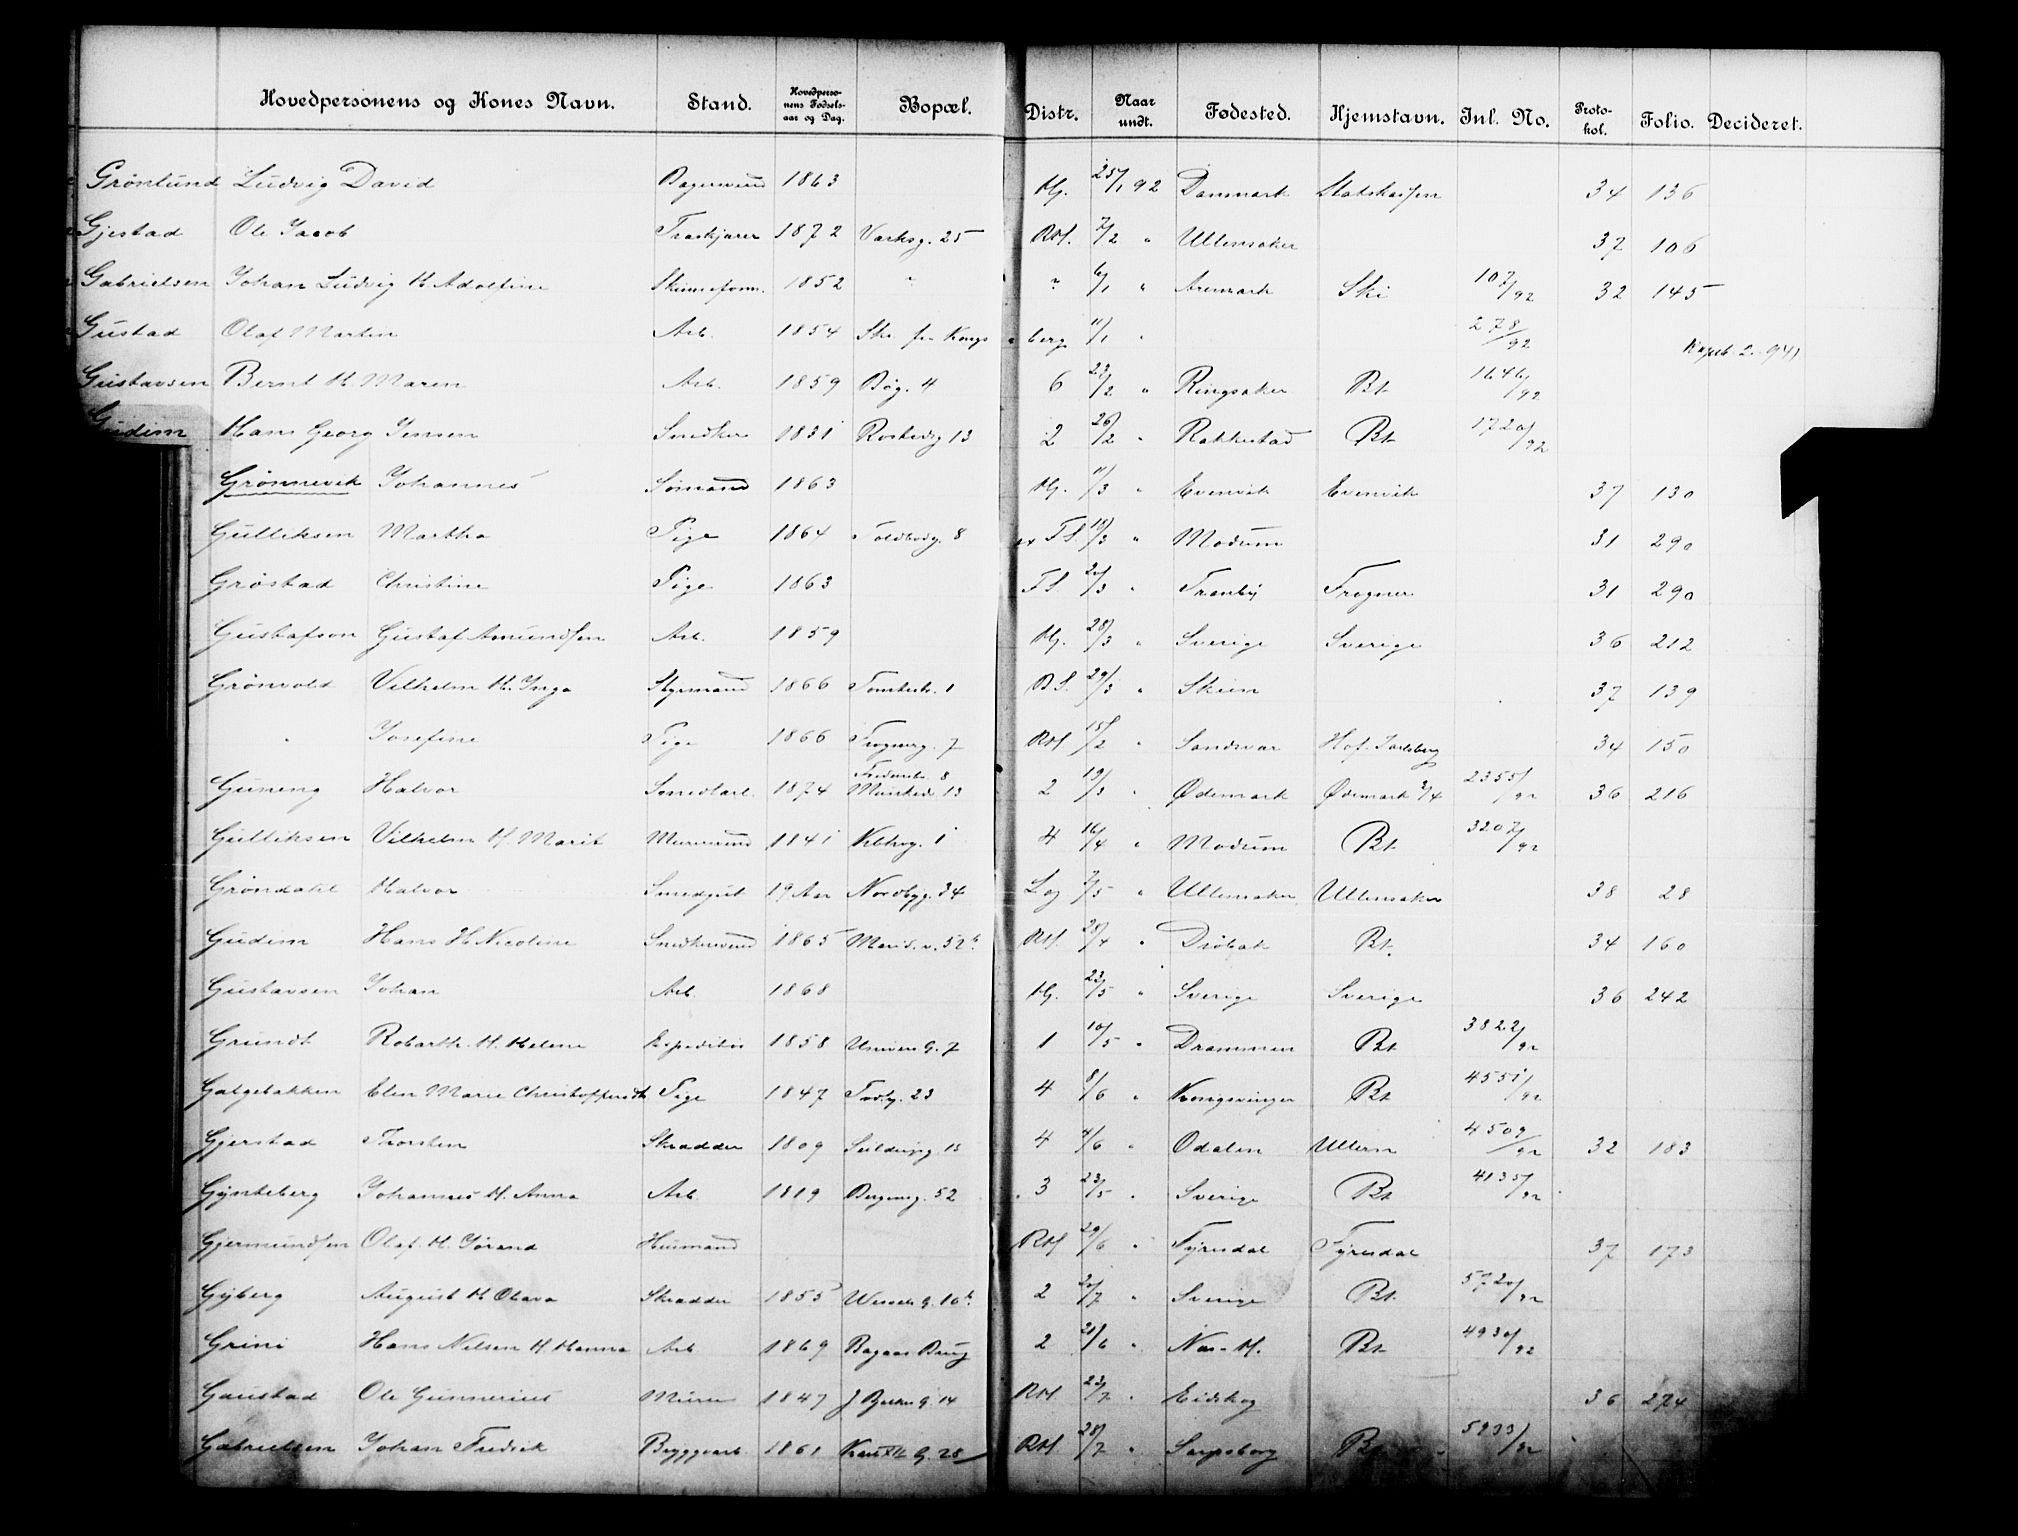 Hovedpersonens og Kones Navn. Stand. Hovedperso-nens Fødsels-aar og Dag. Bopæl. Distr. Naar undt. Fødested. Hjemstavn. Inl. No. Proto-kol. Folio. Decideret.
Grönlund Ludvig David Bagersvend 1863 Hj. 25/1 92 Danmark Statskassen 34 136
Gjestad Ole Jacob 1872 Verksg. 25 RH. 7/2 " Ullensaker 37 106
Gabrielsen Johan Ludvig H Adolfine 1852 " " 6/1 " Aremark Ski 107/92 32 145
Gustad Olaf Martin Arb. 1854 Ske. fra Kongs berg 11/1 " 278/92
Gustavsen Bernt H. Maren Arb. 1859 Bøg. 4 6 22/2 " Ringsaker Bt. 1646/92
Gudim Hans Georg Jensen Snedker 1831 Rostedsg 13 2 26/2 " Rakkestad Bt. 1720/92
Grönnevik Johannes Sömand 1863 Hj. 11/3 " Evenvik Evenvik 37 130
Gulliksen Martha Pige 1864 Toldbodg. 8 FS. 18/3 " Modum 31 290
Gröstad Christine Pige 1863 FS. 21/3 " Tranby Frogner 31 290
Gustafson Gustaf Amundsen Arb. 1859 Hj. 28/3 " Sverige Sverige 36 212
Grönvold Vilhelm H. Inga Styrmand 1866 Tomteb. 1 BS. 29/3 " Skien 37 139
" Josefine Pige 1866 Frognerg. 7 RH 15/2 " Sandsvær Hof. Jarlsberg 34 150
Guneng Halvor 1874 Munked. 13 2 19/3 " Ødemark Ødemark 2/4 2355/92 36 216
Gulliksen Vilhelm H. Marit Mursvend 1841 1 4 16/4 " Modum Bt. 3207/92
Gröndahl Halvor Smedgut 19 Aar Nordbyg. 34 Log 7/5 " Ullensaker Ullensaker 38 28
Gudim Hans H Nicoline Snedkersvend 1865 Marid.v. 52b RH. 28/4 " Dröbak Bt. 34 160
Gustavsen Johan Arb. 1868 Hj. 23/5 " Sverige Sverige 36 242
Grundt Robarth. H. Helene Expeditör 1858 Univers G. 7 1 10/5 " Drammen Bt. 3822/92
Galgebakken Elen Marie Christoffersdt Pige 1847 23 4 8/6 " Kongsvinger Bt. 4551/92
Gjerstad Thorsten Skrædder 1809 Seildugsg. 15 4 4/6 " Odalen Ullern 4509/92 32 183
Gynteberg Johannes H. Anna Arb. 1819 Bergensg. 52 3 23/5 " Sverige Bt. 4135/92
Gjermundsen Olaf. H. Jörand Husmand RH 29/6 " Fyresdal Fyresdal 37 173
Gyberg August H Olava Skrædder 1855 Wessels G. 10b. 2 20/7 " Sverige Bt 5720/92
Grini Hans Nilsen H. Hanna Arb 1869 Bagaas Brug 2 21/6 " Næs-H. Bt. 4930/92
Gaustad Ole Gunnerius Murer 1847 14 RH. 23/7 " Eidskog 36 274
Gabrielsen Johan Fredrik Bryggearb 1861 28 RH. 28/7 " Sarpsborg Bt. 5933/92